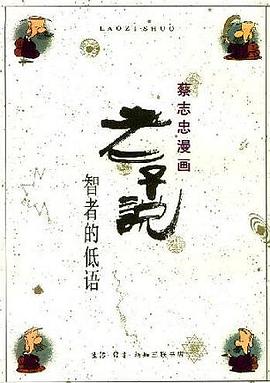 LAOZI·SHUO
蔡志忠漫画
老子説
智者的低语
生活·讀書·新知三联书店